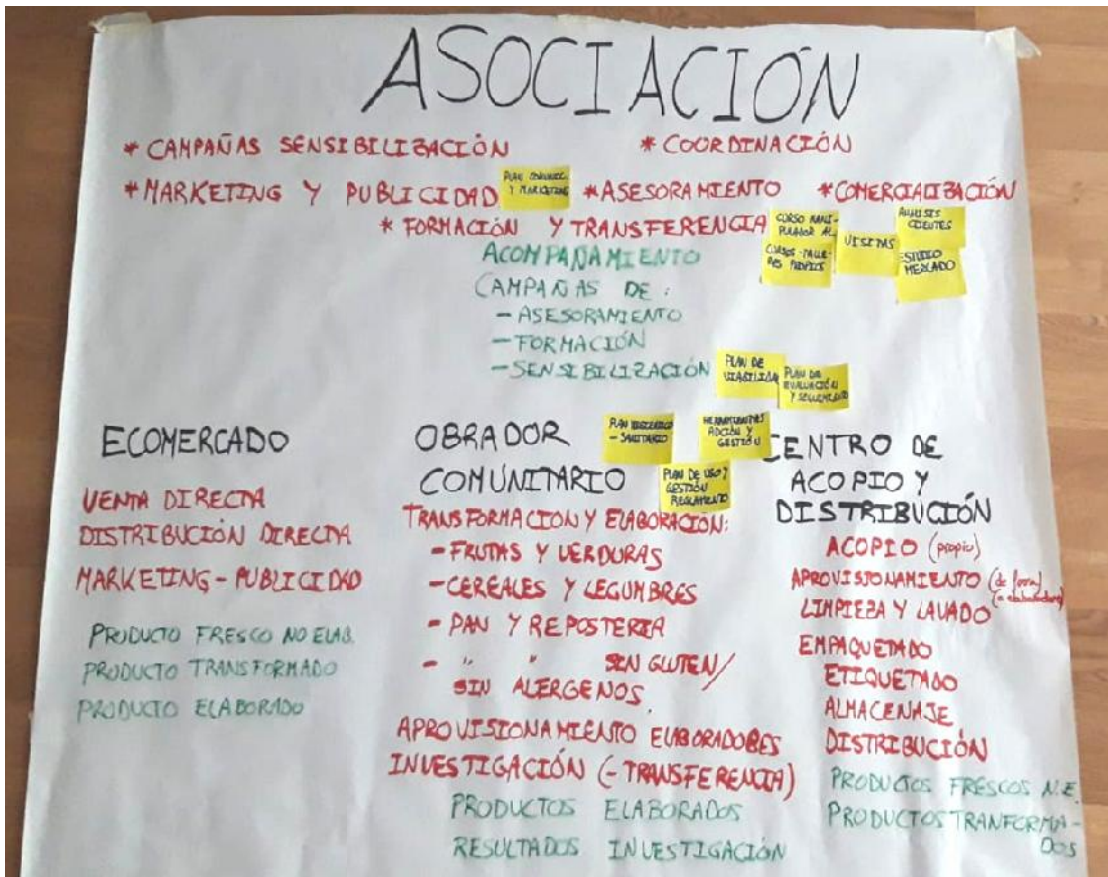 ASOCIACIÓN
* CAMPAÑAS SENSIBILIZACIÓN
* COORDINACIÓN
* MARKETING Y PUBLICIDAD
PLAN COMUNIC. Y MARKETING
* ASESORAMIENTO
* COMERCIALIZACIÓN
* FORMACIÓN Y TRANSFERENCIA
CURSO MANI-
PULADOR AL.
CURSOS-TALLE-
RES PROPIOS
VISITAS
ANALISIS
CLIENTES
ESTUDIO
MERCADO
ACOMPAÑAMIENTO
CAMPAÑAS DE:
- ASESORAMIENTO
- FORMACIÓN
- SENSIBILIZACIÓN
PLAN DE
VIABILIDAD
PLAN DE
EVALUACIÓN
Y SEGUIMIENTO
ECOMERCADO
VENTA DIRECTA
DISTRIBUCIÓN DIRECTA
MARKETING - PUBLICIDAD
PRODUCTO FRESCO NO ELAB.
PRODUCTO TRANSFORMADO
PRODUCTO ELABORADO
OBRADOR
COMUNITARIO
PLAN HIGIENICO
- SANITARIO
HERRAMIENTAS
Y
GESTIÓN
PLAN DE USO Y
GESTIÓN
REGLAMENTO
TRANSFORMACION Y ELABORACIÓN:
- FRUTAS Y VERDURAS
- CEREALES Y LEGUMBRES
- PAN Y REPOSTERIA
- " " SIN GLUTEN/
SIN ALERGENOS.
APROVISIONAMIENTO ELABORADORES
INVESTIGACIÓN (-TRANSFERENCIA)
PRODUCTOS ELABORADOS
RESULTADOS INVESTIGACIÓN
CENTRO DE
ACOPIO Y
DISTRIBUCIÓN
ACOPIO (propio)
APROVISIONAMIENTO
LIMPIEZA Y LAVADO
EMPAQUETADO
ETIQUETADO
ALMACENAJE
DISTRIBUCIÓN
PRODUCTOS FRESCOS N.E.
PRODUCTOS TRANFORMA-
DOS